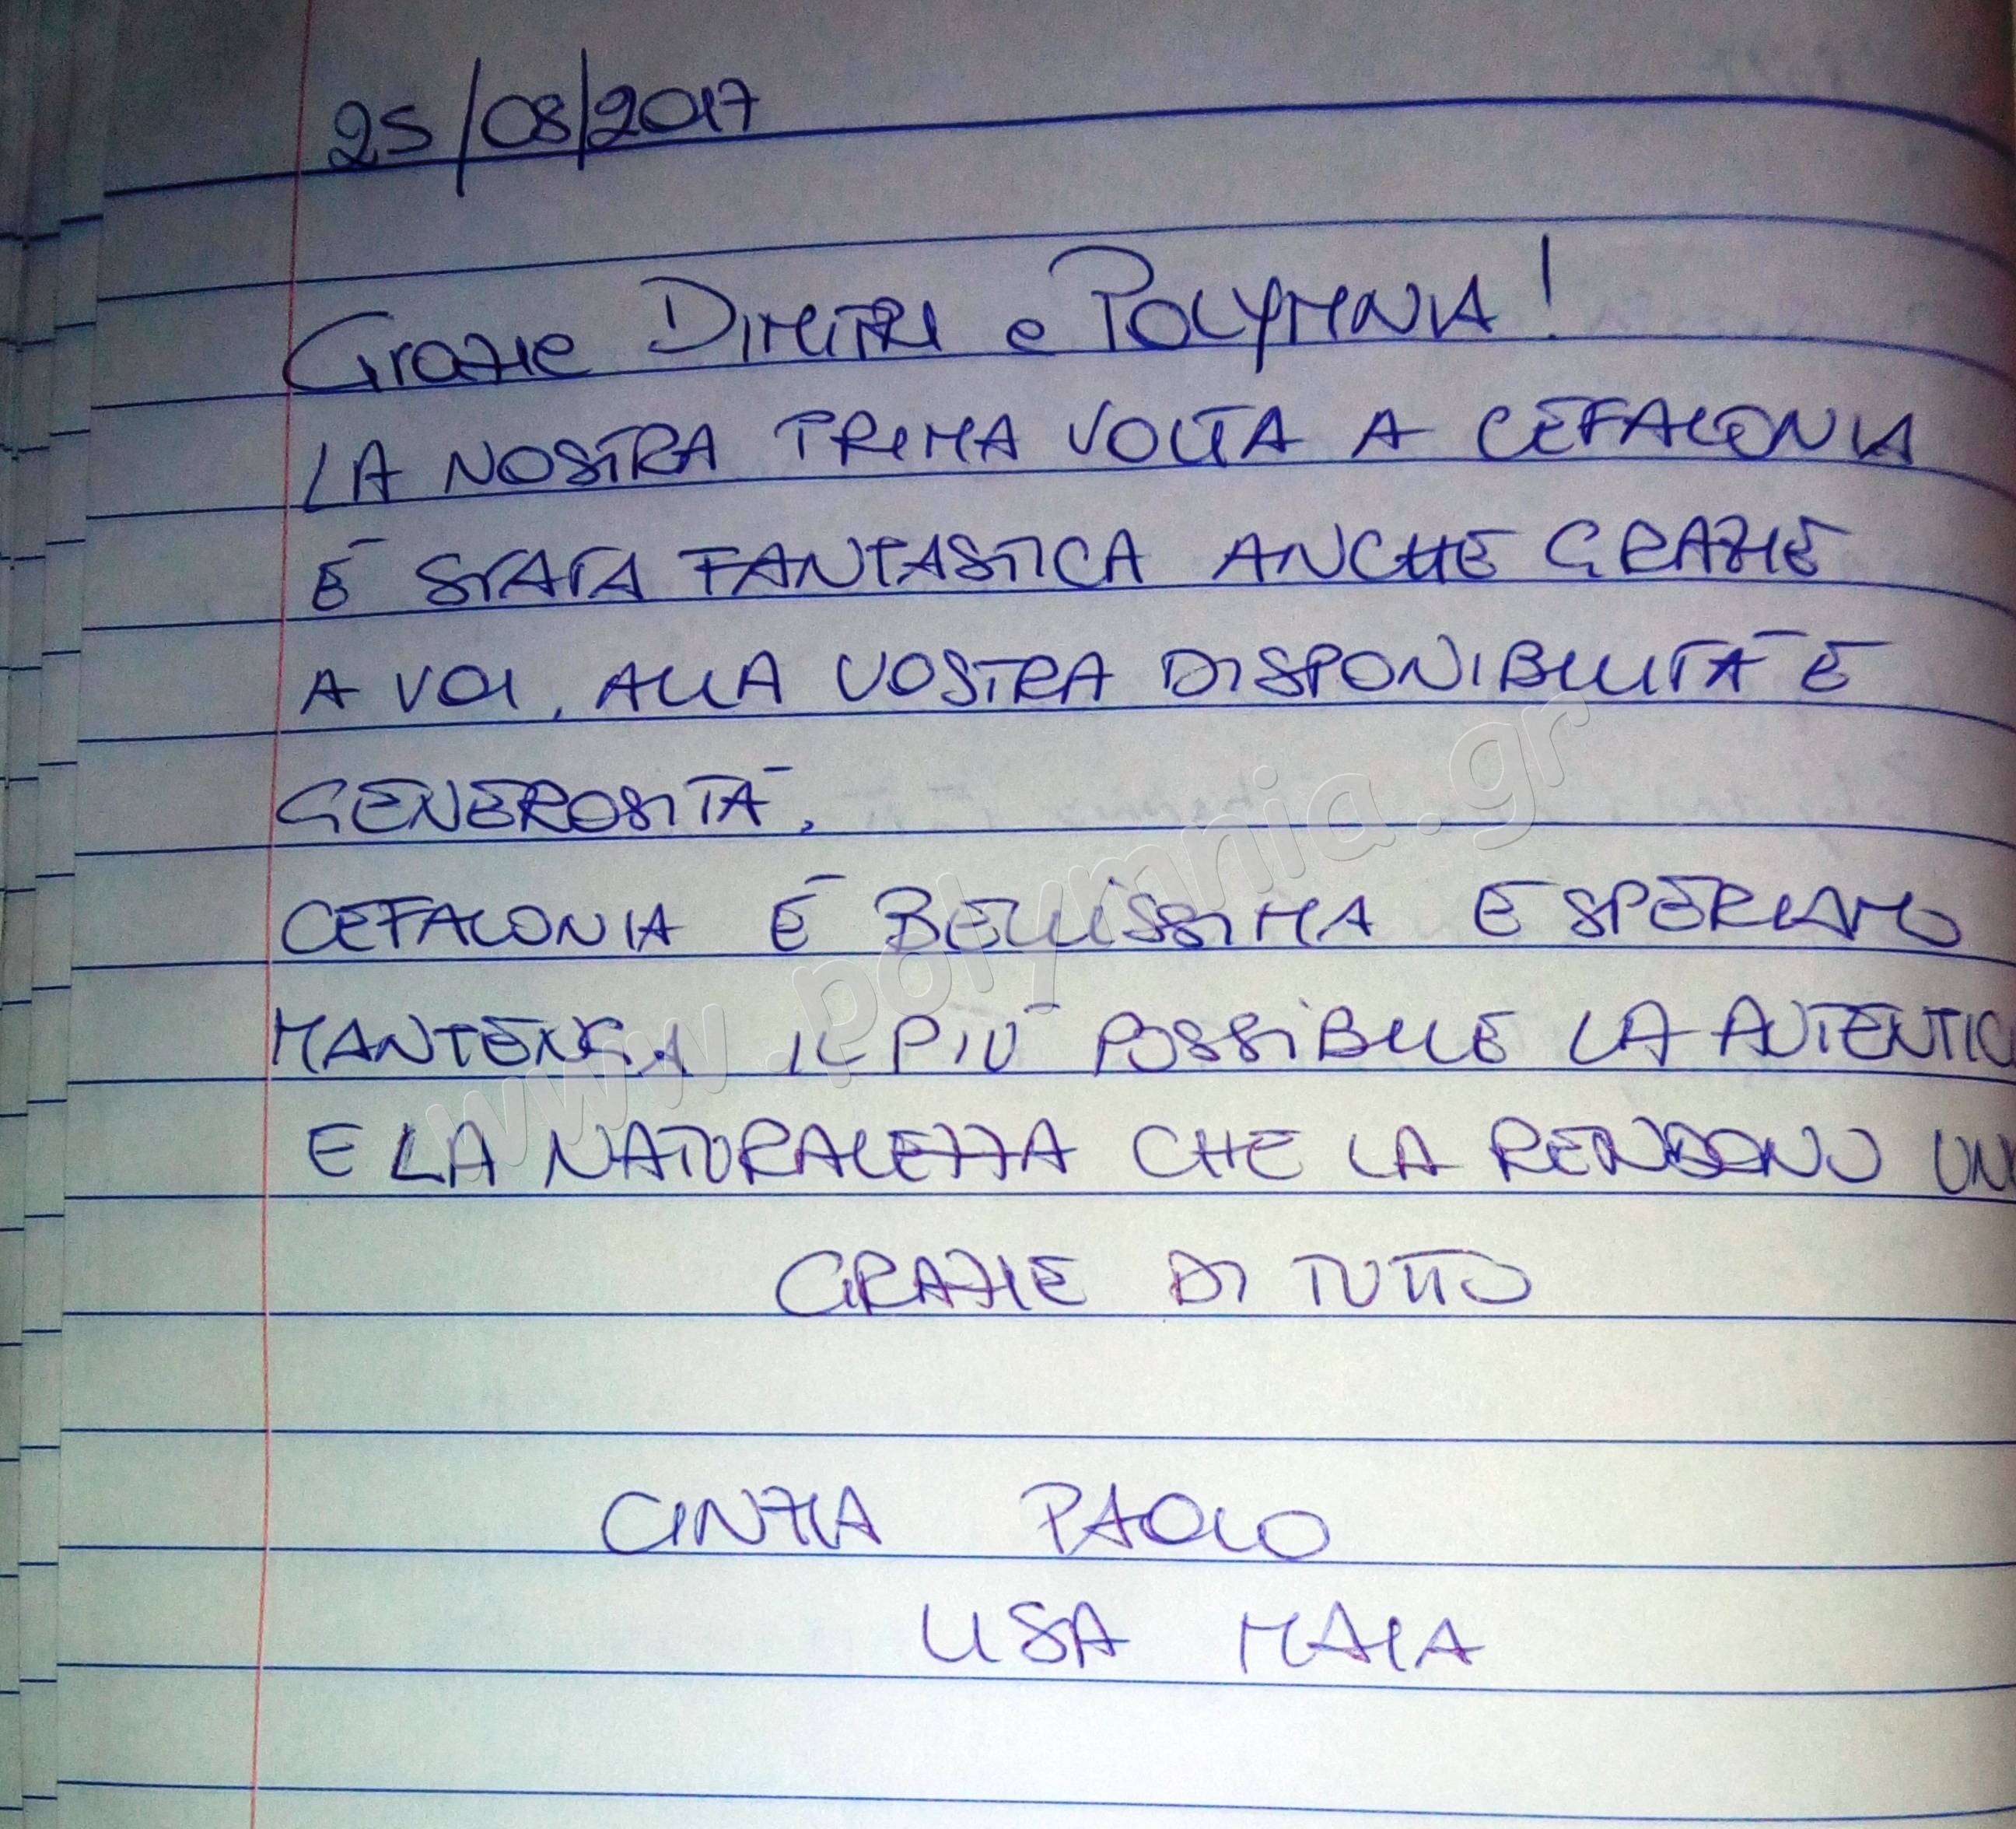 25/08/2017
Grazie DIMITRI e POLYMNIA!
LA NOSTRA PRIMA VOLTA A CEFALONIA
È STATA FANTASTICA ANCHE GRAZIE
A VOI, ALLA VOSTRA DISPONIBILITÀ E
GENEROSITÀ.
CEFALONIA È BELLISSIMA E SPERIAMO
MANTENGA IL PIÙ POSSIBILE LA AUTENTIC
E LA NATURALEZZA CHE LA RENDONO UN
GRAZIE DI TUTTO
CINZIA PAOLO
LISA MAIA
www.polymnia.gr